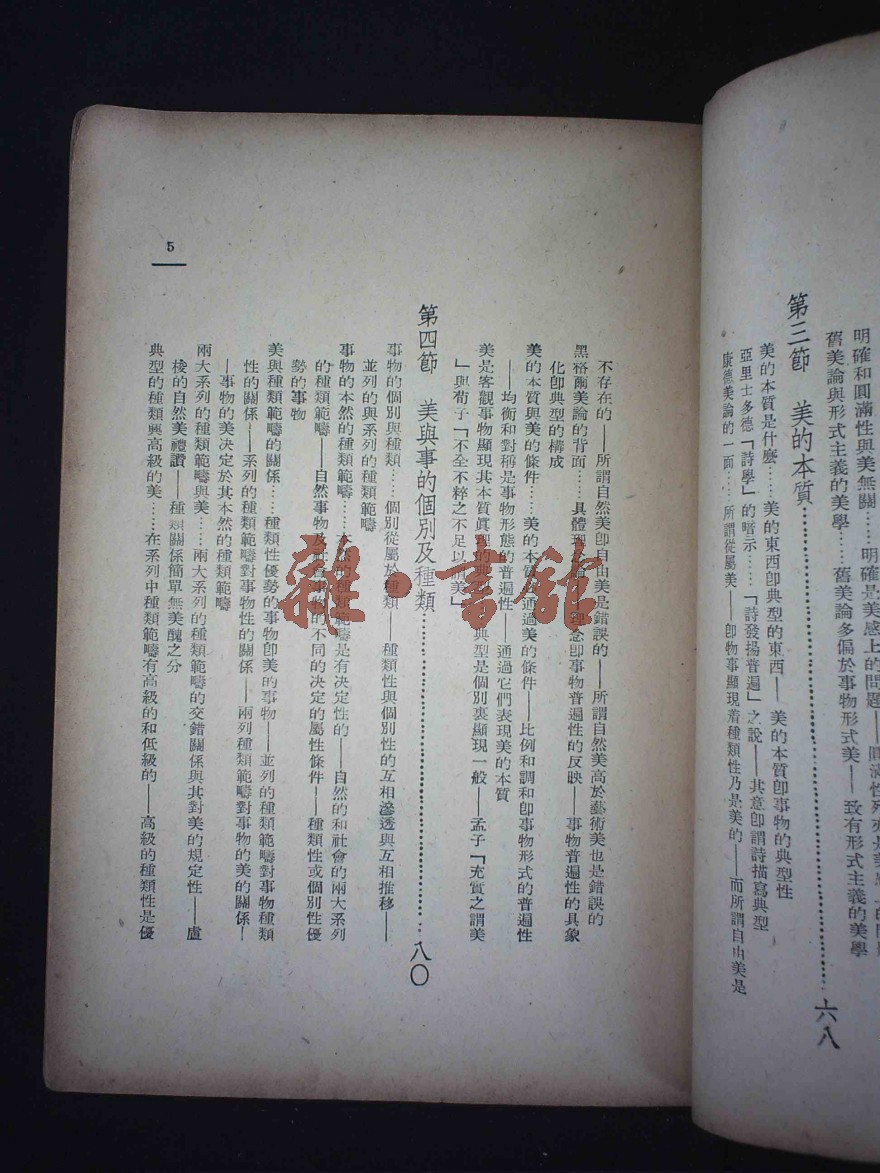 明確和圓滿性與美無關……明確是美感上的問題——圓滿性
舊美論與形式主義的美學……舊美論多偏於事物形式美——致有形式主義的美學
第三節　美的本質……六八
美的本質是什麽……美的東西卽典型的東西——美的本質卽事物的典型性
亞里士多德「詩學」的暗示……「詩發揚普遍」之說——其意卽謂詩描寫典型
康德美論的一面……所謂從屬美——卽物事顯現着種類性乃是美的——而所謂自由美是
不存在的——所謂自然美卽自由美是錯誤的——所謂自然美高於藝術美也是錯誤的
黑格爾美論的背面……具體理念——理念卽事物普遍性的反映——事物普遍性的具象
化卽典型的構成
美的本質與美的條件……美的本質通過美的條件——比例和調和卽事物形式的普遍性
——均衡和對稱是事物形態的普遍性——通過它們表現美的本質
美是客觀事物顯現其本質眞理的典型——典型是個別裏顯現一般——孟子「充實之謂美
」與荀子「不全不粹之不足以謂美」
第四節　美與事的個別及種類……八〇
事物的個別與種類……個別從屬於種類——種類性與個別性的互相滲透與互相推移——
並列的與系列的種類範疇
事物的本然的種類範疇……本然的種類範疇是有決定性的——自然的和社會的兩大系列
的種類範疇——自然事物及社會事物的不同的决定的屬性條件——種類性或個別性優
勢的事物
美與種類範疇的關係……種類性優勢的事物卽美的事物——並列的種類範疇對事物種類
性的關係——系列的種類範疇對事物性的關係——兩列種類範疇對事物的美的關係—
—事物的美决定於其本然的種類範疇
兩大系列的種類範疇與美……兩大系列的種類範疇的交錯關係與其對美的規定性——盧
梭的自然美禮讚——種類關係簡單無美醜之分
典型的種類與高級的美……在系列中種類範疇有高級的和低級的——高級的種類性是優
5
雜·書舘